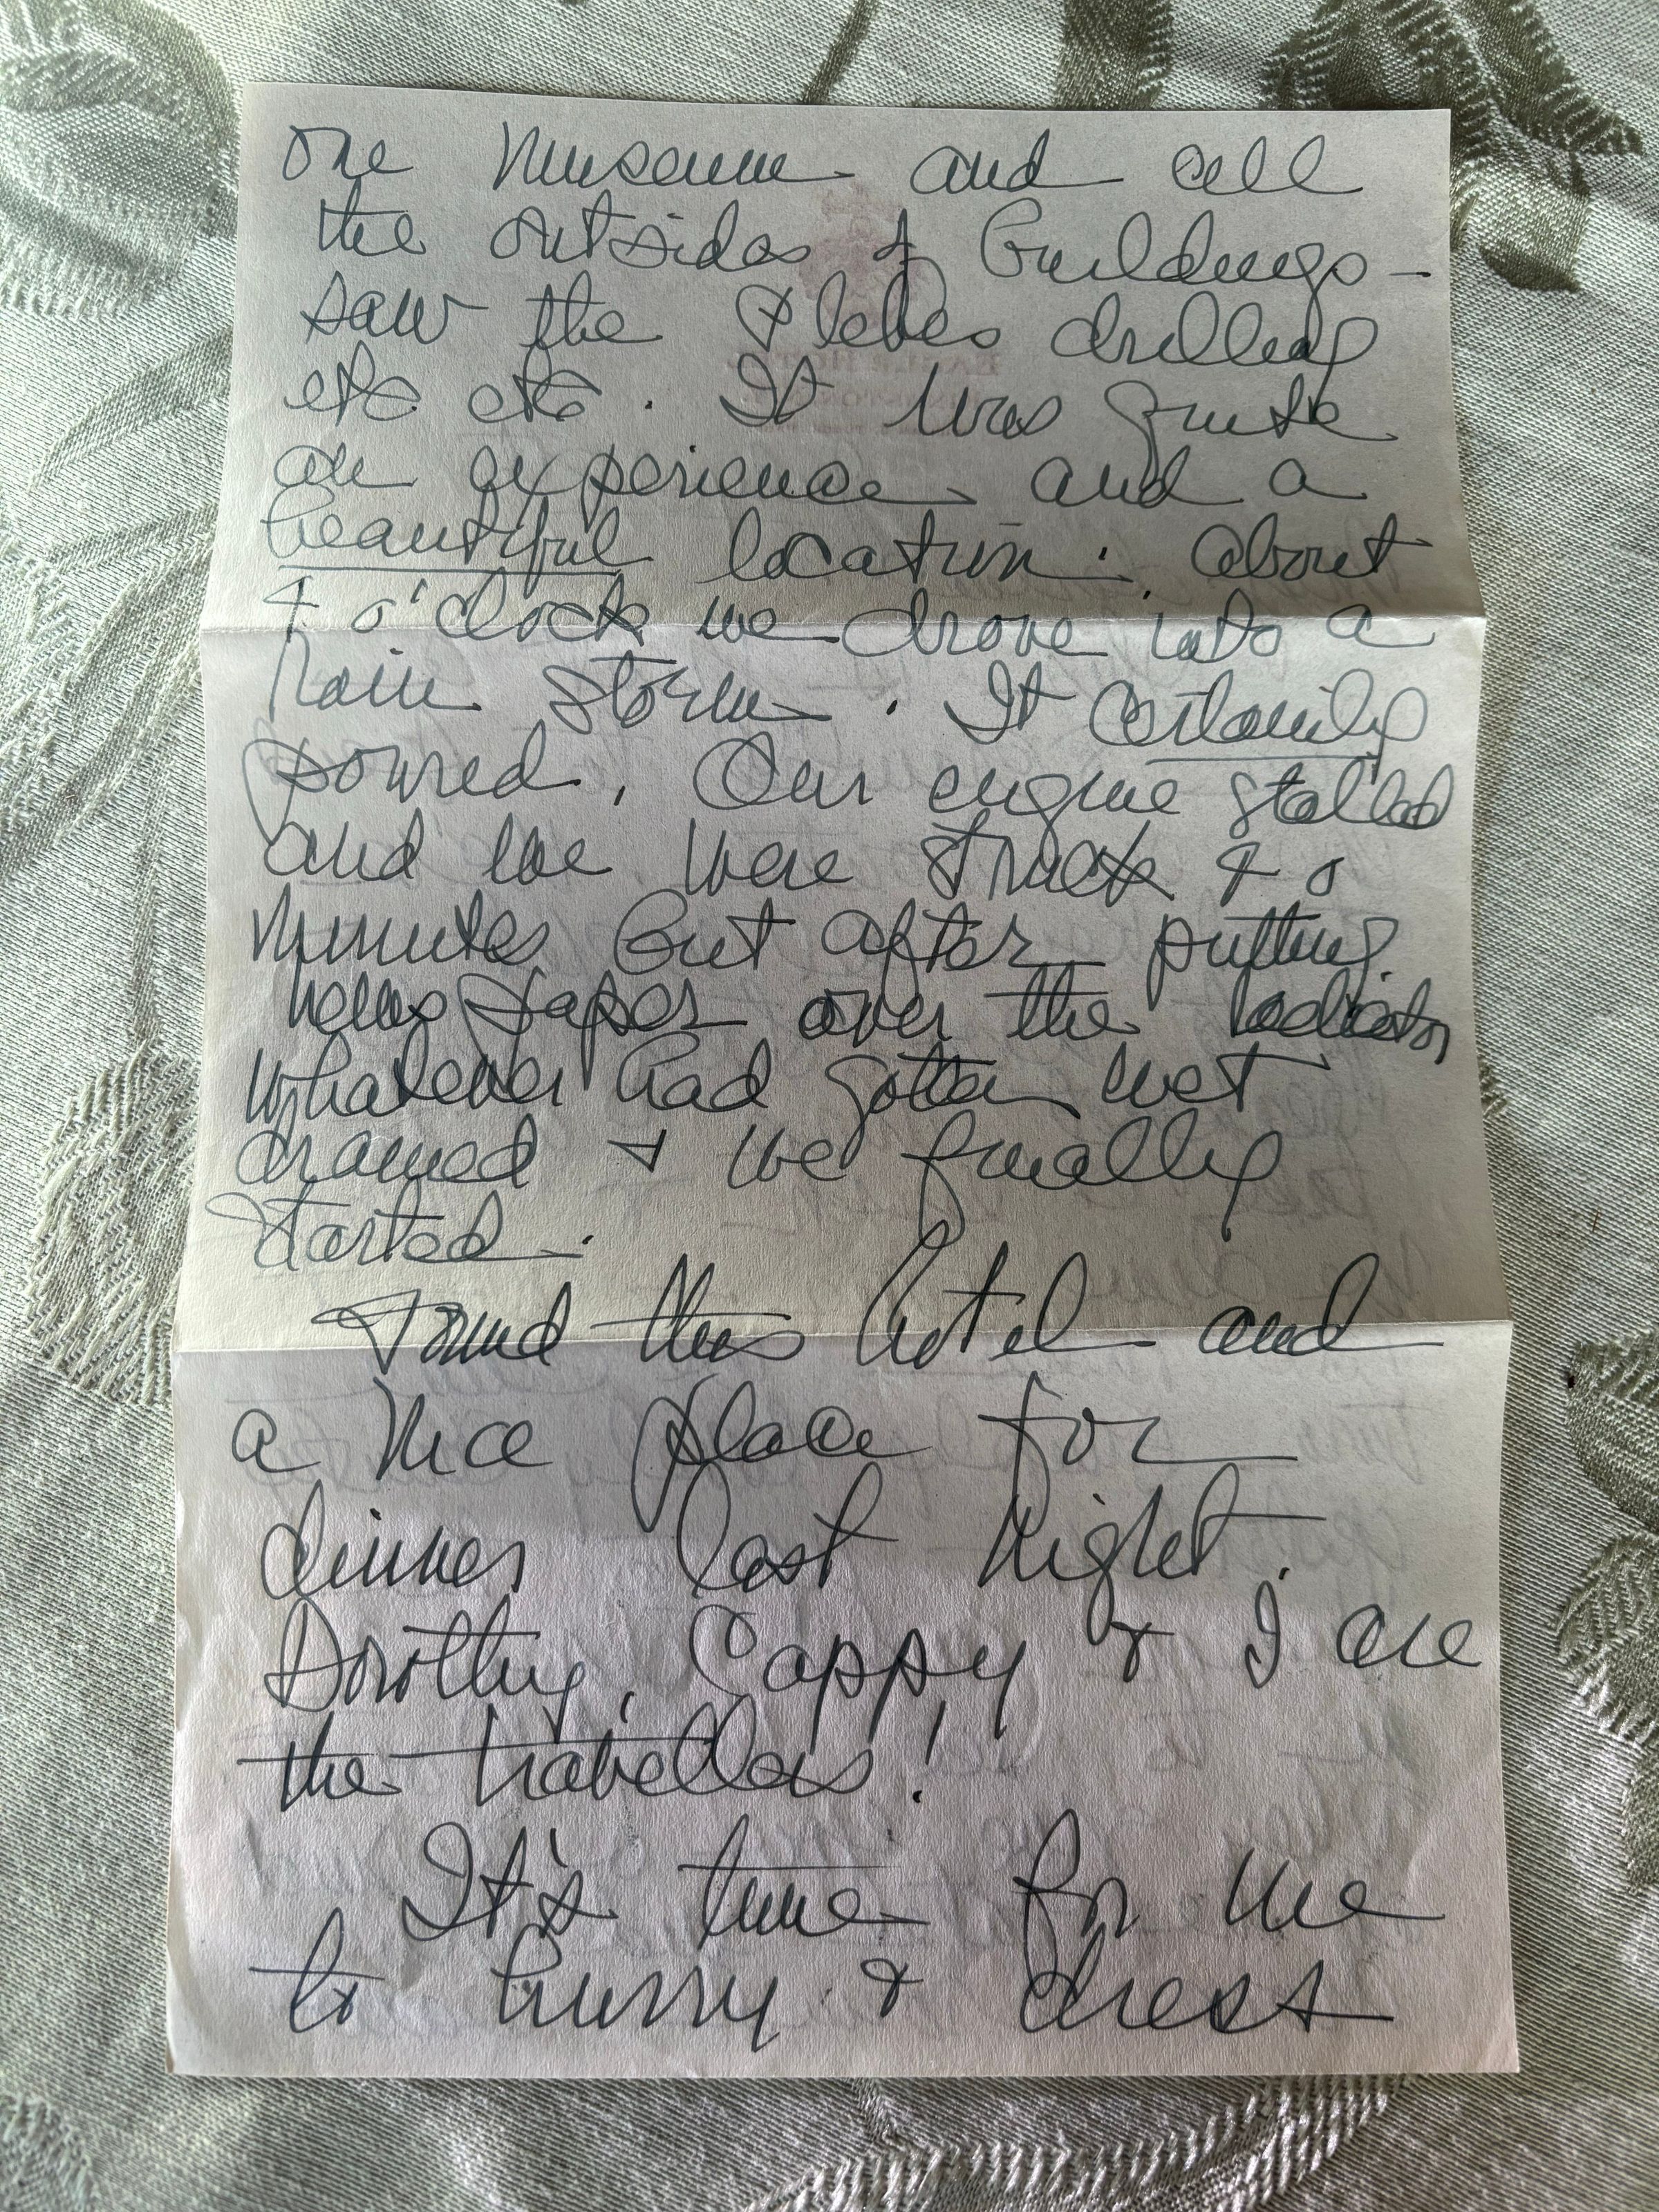 one museum and all
the outsides of buildings -
saw the Plebes drilling
etc etc. It was quite
an experience and a
beautiful location. About
4 o'clock we drove into a
rain storm. It certainly
poured. Our engine stalled
and we were stuck 40
minutes but after putting
newspaper over the radiator
whatever had gotten wet
drained & we finally
started.
Found this hotel and
a nice place for
dinner last night.
Dorothy, Cappy & I are
the travellers!
It's time for me
to hurry & dress